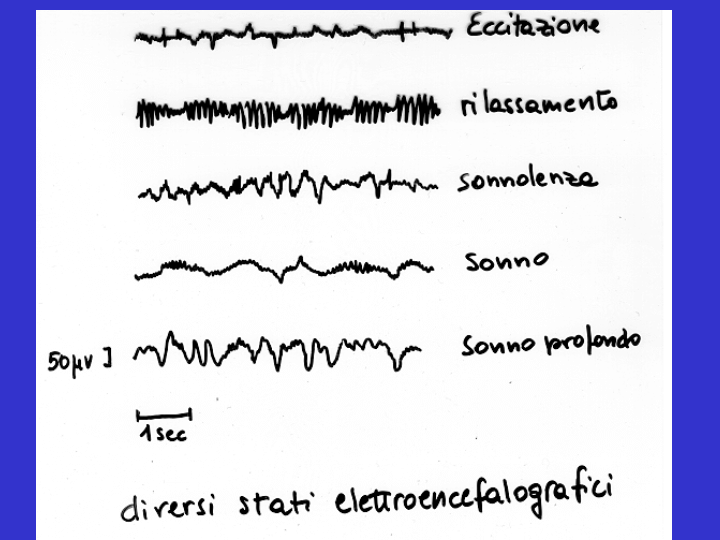 Eccitazione
rilassamento
sonnolenza
sonno
50µv ] sonno profondo
1 sec
diversi stati elettroencefalografici